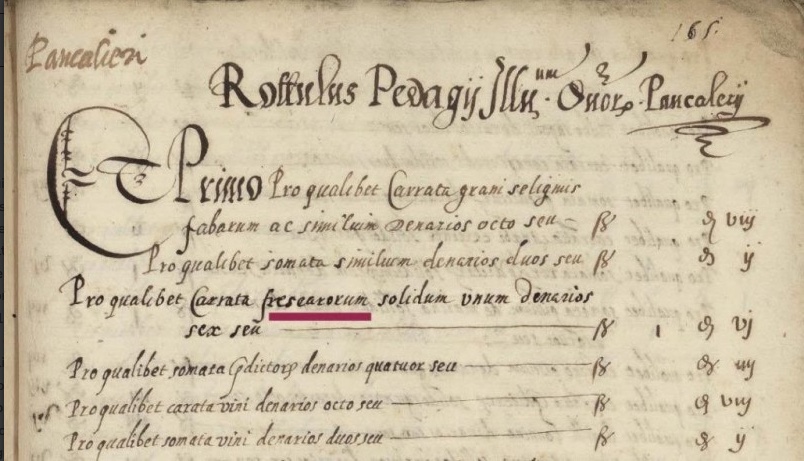 165.
Pancalieri
Rottulus Pedagij Illu.um Dnor. Pancalerij
Et Primo Pro qualibet Carrata grani seliginis
fabarum ac similium denarios octo seu ß đ viij
Pro qualibet somata similium denarios duos seu ß đ ij
Pro qualibet Carrata fresearorum solidum unum denarios
sex seu ß 1 đ vj
Pro qualibet somata p̄dictor. denarios quatuor seu ß đ iiij
Pro qualibet carata vini denarios octo seu ß đ viij
Pro qualibet somata vini denarios duos seu ß đ ij